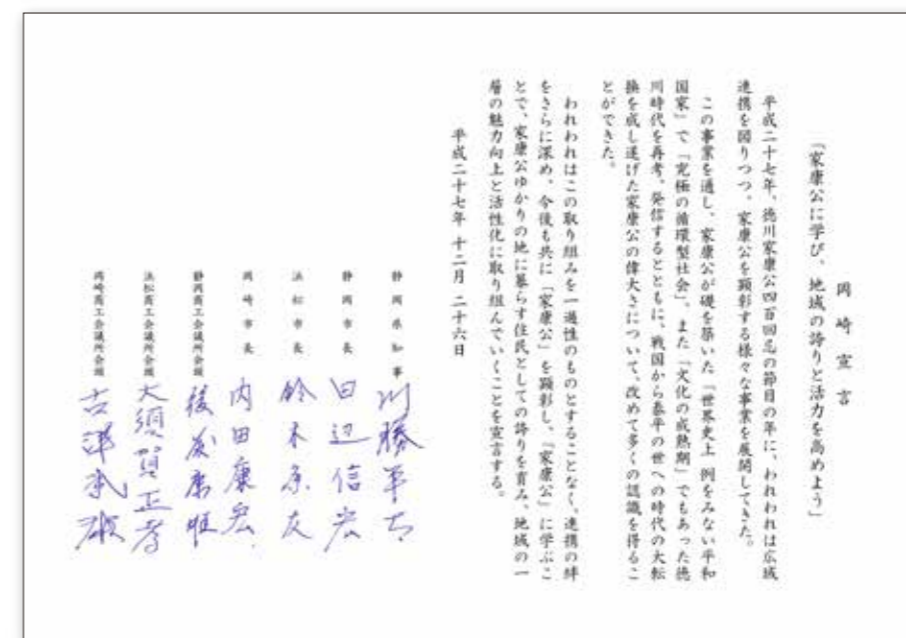 岡崎宣言
「家康公に学び、地域の誇りと活力を高めよう」
平成二十七年、徳川家康公四百回忌の節目の年に、われわれは広域
連携を図りつつ、家康公を顕彰する様々な事業を展開してきた。
この事業を通し、家康公が礎を築いた「世界史上 例をみない平和
国家」で「究極の循環型社会」、また「文化の成熟期」でもあった徳
川時代を再考、発信するとともに、戦国から泰平の世への時代の大転
換を成し遂げた家康公の偉大さについて、改めて多くの認識を得るこ
とができた。
われわれはこの取り組みを一過性のものとすることなく、連携の絆
をさらに深め、今後も共に「家康公」を顕彰し、「家康公」に学ぶこ
とで、家康公ゆかりの地に暮らす住民としての誇りを育み、地域の一
層の魅力向上と活性化に取り組んでいくことを宣言する。
平成二十七年 十二月 二十六日
静岡県知事 川勝平太
静岡市長 田辺信宏
浜松市長 鈴木康友
岡崎市長 内田康宏
静岡商工会議所会頭 後藤康雄
浜松商工会議所会頭 大須賀正孝
岡崎商工会議所会頭 古澤武雄